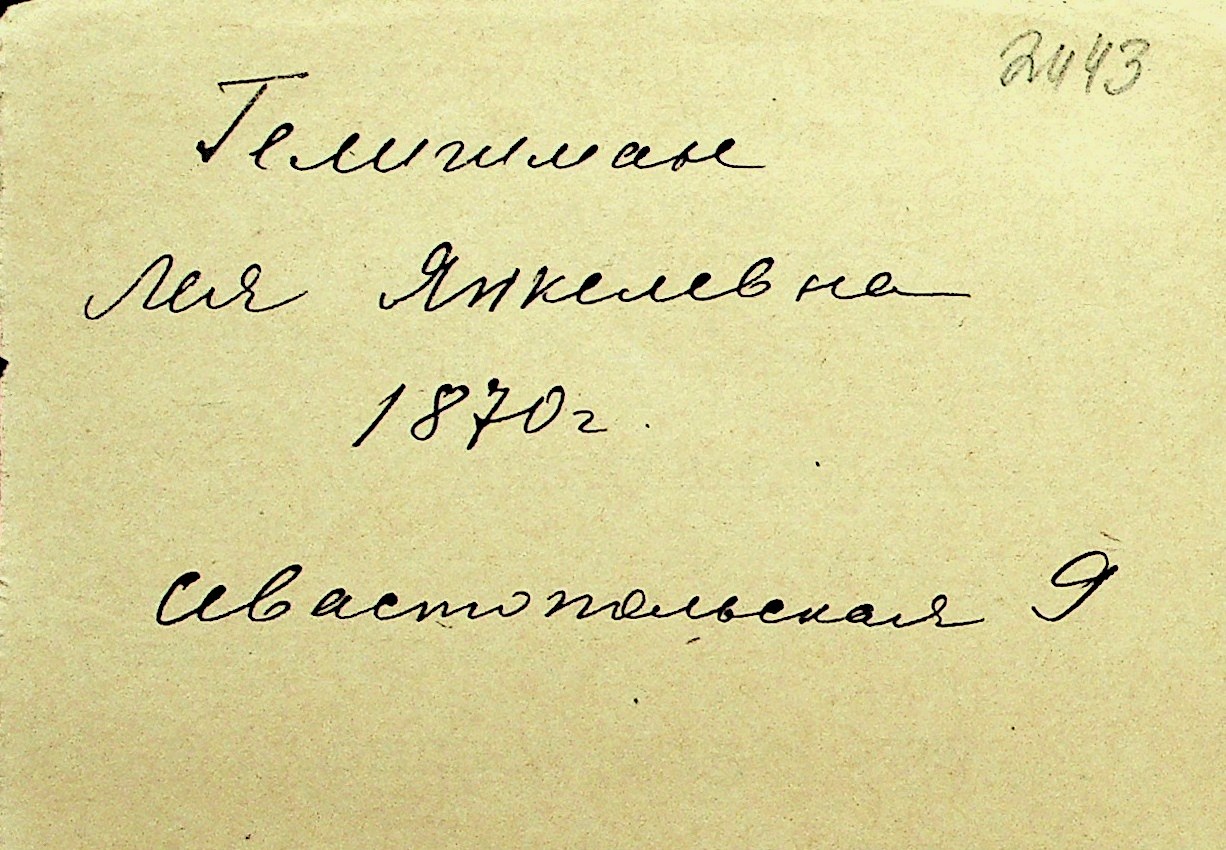 2443
Гелигман
Лея Янкелевна
1870г.
Севастопольская 9